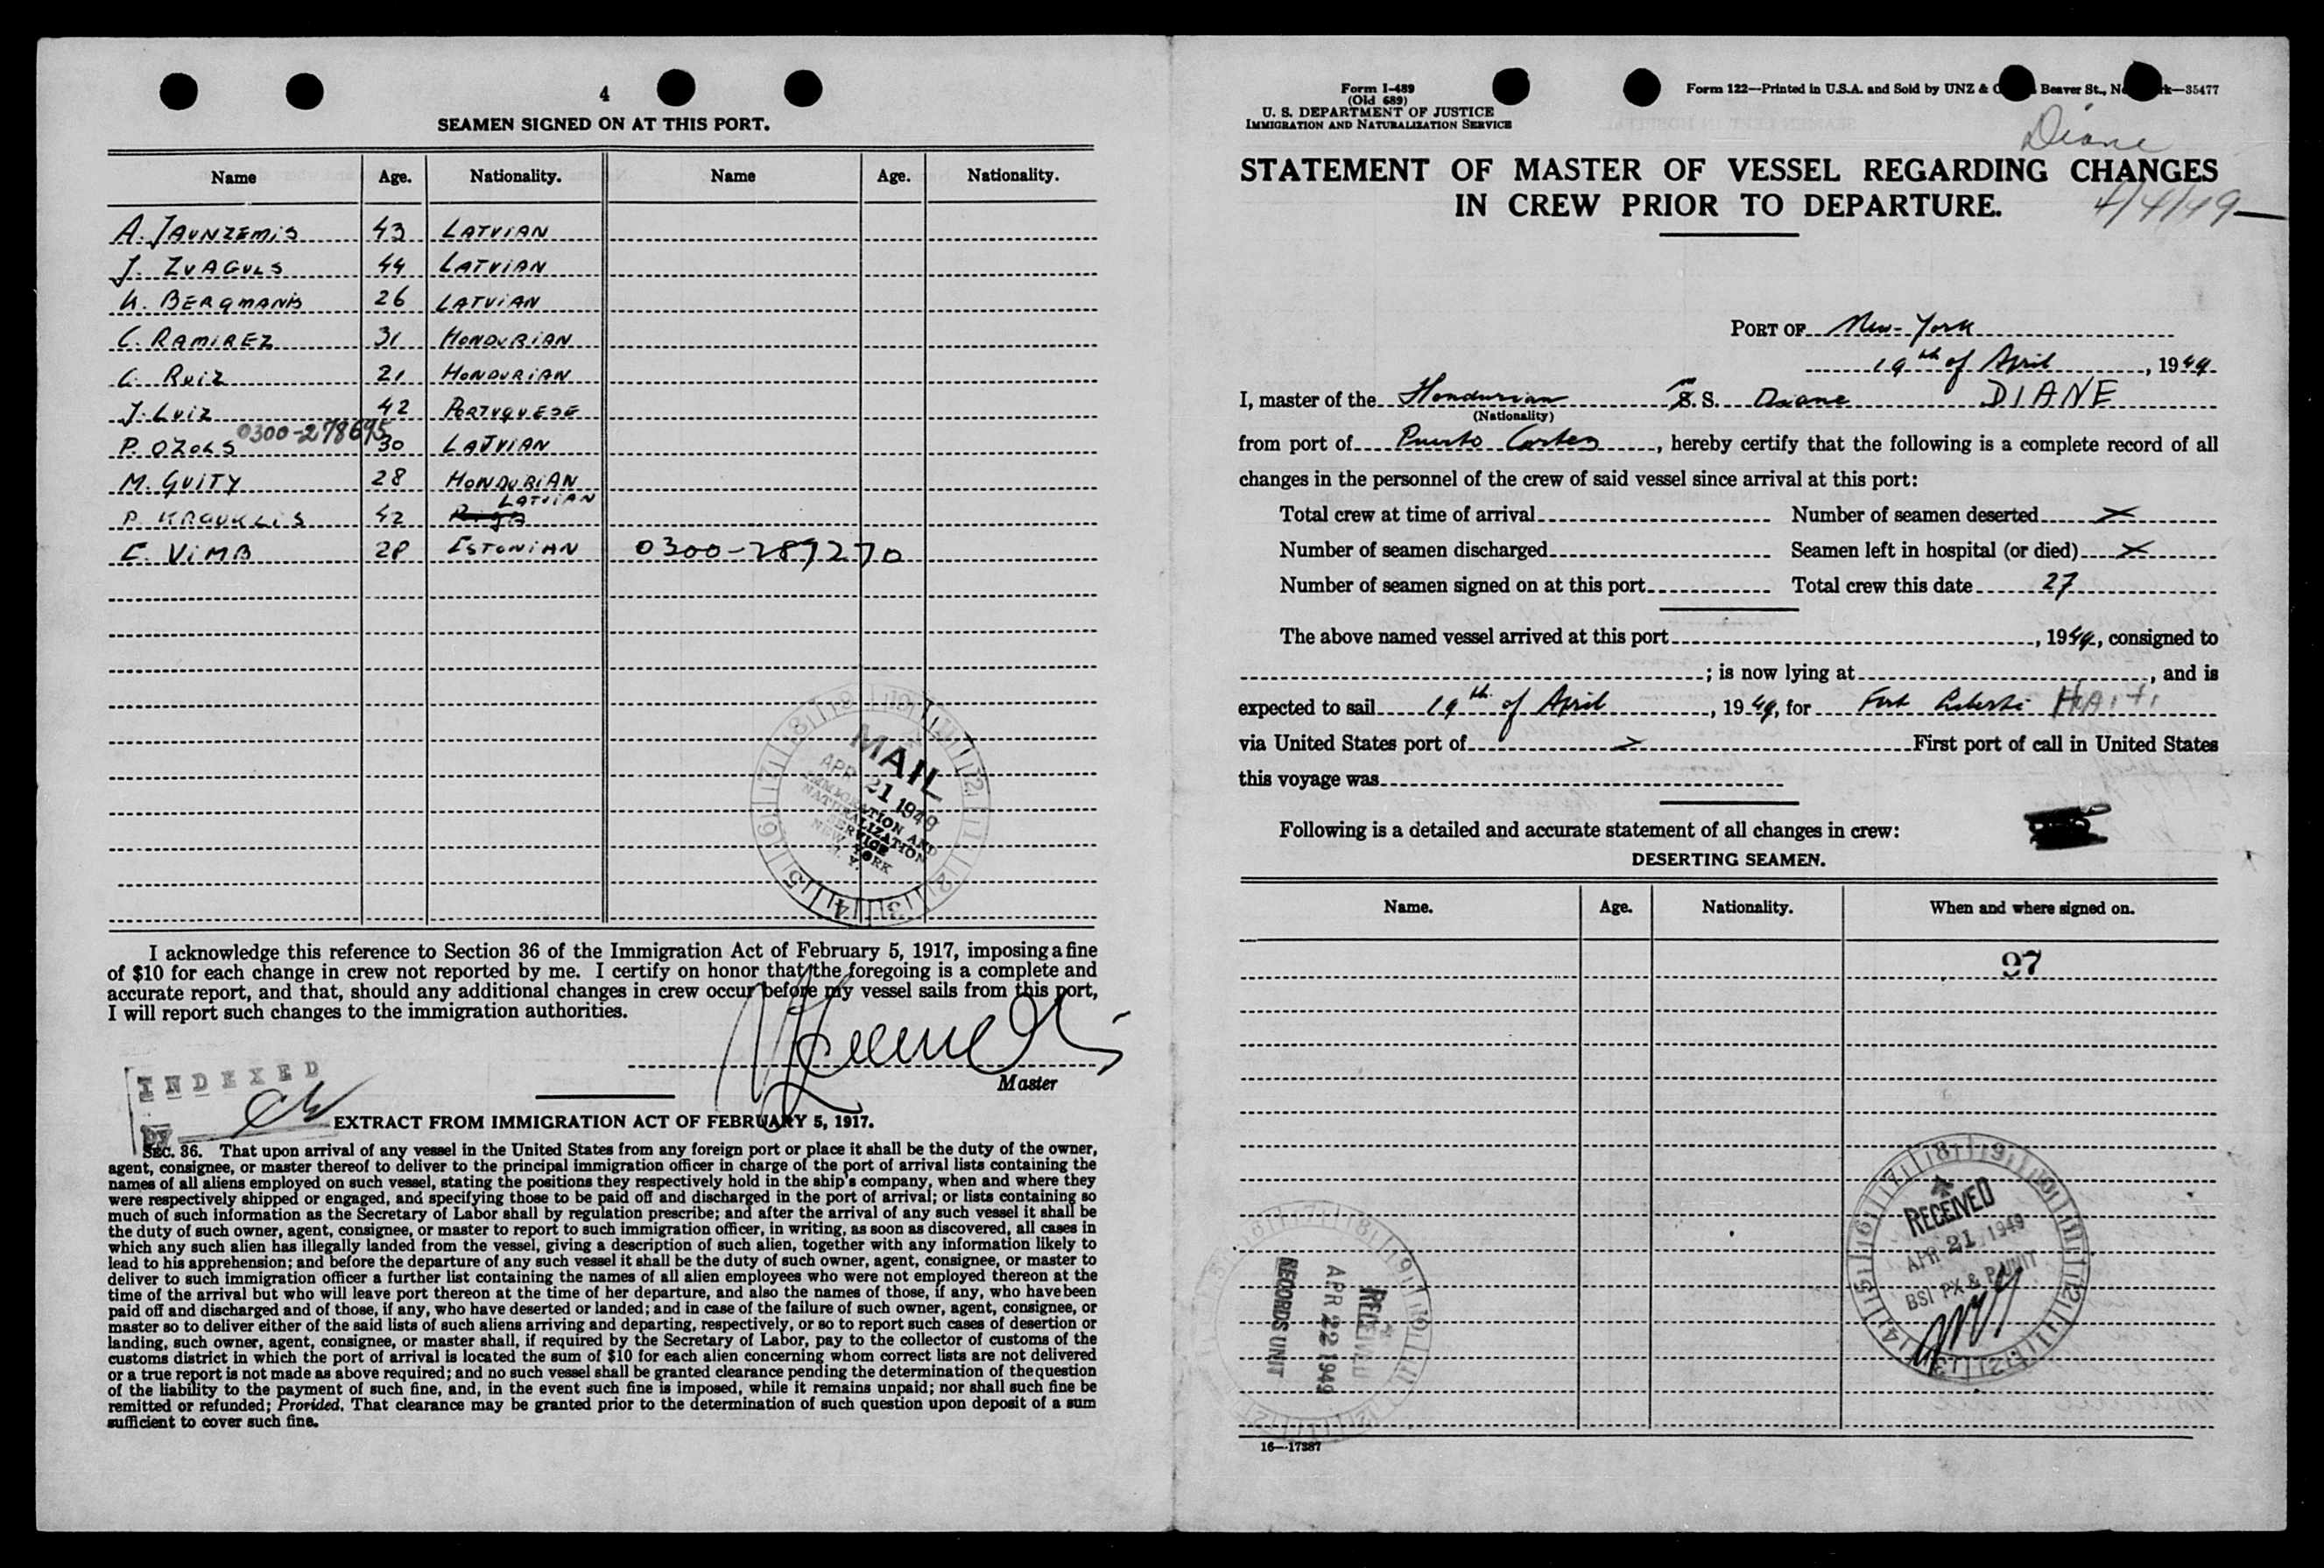 4
SEAMEN SIGNED ON AT THIS PORT.
Name Age. Nationality. Name Age. Nationality.
A. JAUNZEMIS 43 LATVIAN
J. ZVAGULS 44 LATVIAN
BERGMANIS 26 LATVIAN
C. RAMIREZ 31 HONDURIAN
C. RUIZ 21 HONDURIAN
J. LUIZ 42 PORTUGUESE
P. OZOLS 0300-278695 30 LATVIAN
M. GUITY 28 HONDURIAN
P. KRAUKLIS 42 LATVIAN
E. VIMB 28 ESTONIAN 0300-289270
MAIL
APR 21 1949
IMMIGRATION AND
NATURALIZATION
SERVICE
NEW YORK
N. Y.
I acknowledge this reference to Section 36 of the Immigration Act of February 5, 1917, imposing a fine
of $10 for each change in crew not reported by me. I certify on honor that the foregoing is a complete and
accurate report, and that, should any additional changes in crew occur before my vessel sails from this port,
I will report such changes to the immigration authorities.
Master
INDEXED
BY
EXTRACT FROM IMMIGRATION ACT OF FEBRUARY 5, 1917.
SEC. 36. That upon arrival of any vessel in the United States from any foreign port or place it shall be the duty of the owner,
agent, consignee, or master thereof to deliver to the principal immigration officer in charge of the port of arrival lists containing the
names of all aliens employed on such vessel, stating the positions they respectively hold in the ship's company, when and where they
were respectively shipped or engaged, and specifying those to be paid off and discharged in the port of arrival; or lists containing so
much of such information as the Secretary of Labor shall by regulation prescribe; and after the arrival of any such vessel it shall be
the duty of such owner, agent, consignee, or master to report to such immigration officer, in writing, as soon as discovered, all cases in
which any such alien has illegally landed from the vessel, giving a description of such alien, together with any information likely to
lead to his apprehension; and before the departure of any such vessel it shall be the duty of such owner, agent, consignee, or master to
deliver to such immigration officer a further list containing the names of all alien employees who were not employed thereon at the
time of the arrival but who will leave port thereon at the time of her departure, and also the names of those, if any, who have been
paid off and discharged and of those, if any, who have deserted or landed; and in case of the failure of such owner, agent, consignee, or
master so to deliver either of the said lists of such aliens arriving and departing, respectively, or so to report such cases of desertion or
landing, such owner, agent, consignee, or master shall, if required by the Secretary of Labor, pay to the collector of customs of the
customs district in which the port of arrival is located the sum of $10 for each alien concerning whom correct lists are not delivered
or a true report is not made as above required; and no such vessel shall be granted clearance pending the determination of the question
of the liability to the payment of such fine, and, in the event such fine is imposed, while it remains unpaid; nor shall such fine be
remitted or refunded; Provided, That clearance may be granted prior to the determination of such question upon deposit of a sum
sufficient to cover such fine.
Form I-489
(Old 689)
U. S. DEPARTMENT OF JUSTICE
IMMIGRATION AND NATURALIZATION SERVICE
Form 122—Printed in U.S.A. and Sold by UNZ & Beaver St., —35477
Diane
STATEMENT OF MASTER OF VESSEL REGARDING CHANGES
IN CREW PRIOR TO DEPARTURE.
4/4/49
PORT OF New-York
19th of April, 1949
I, master of the Hondurian S. S. Diane DIANE
(Nationality)
from port of Puerto Cortez, hereby certify that the following is a complete record of all
changes in the personnel of the crew of said vessel since arrival at this port:
Total crew at time of arrival Number of seamen deserted X
Number of seamen discharged Seamen left in hospital (or died) X
Number of seamen signed on at this port Total crew this date 27
The above named vessel arrived at this port , 1949, consigned to
; is now lying at , and is
expected to sail 19th of April, 1949, for Fort Liberte HAITI
via United States port of First port of call in United States
this voyage was
Following is a detailed and accurate statement of all changes in crew:
DESERTING SEAMEN.
Name. Age. Nationality. When and where signed on.
97
RECEIVED
APR 21 1949
BSI PX & P UNIT
RECEIVED
APR 22 1949
RECORDS UNIT
16—17387